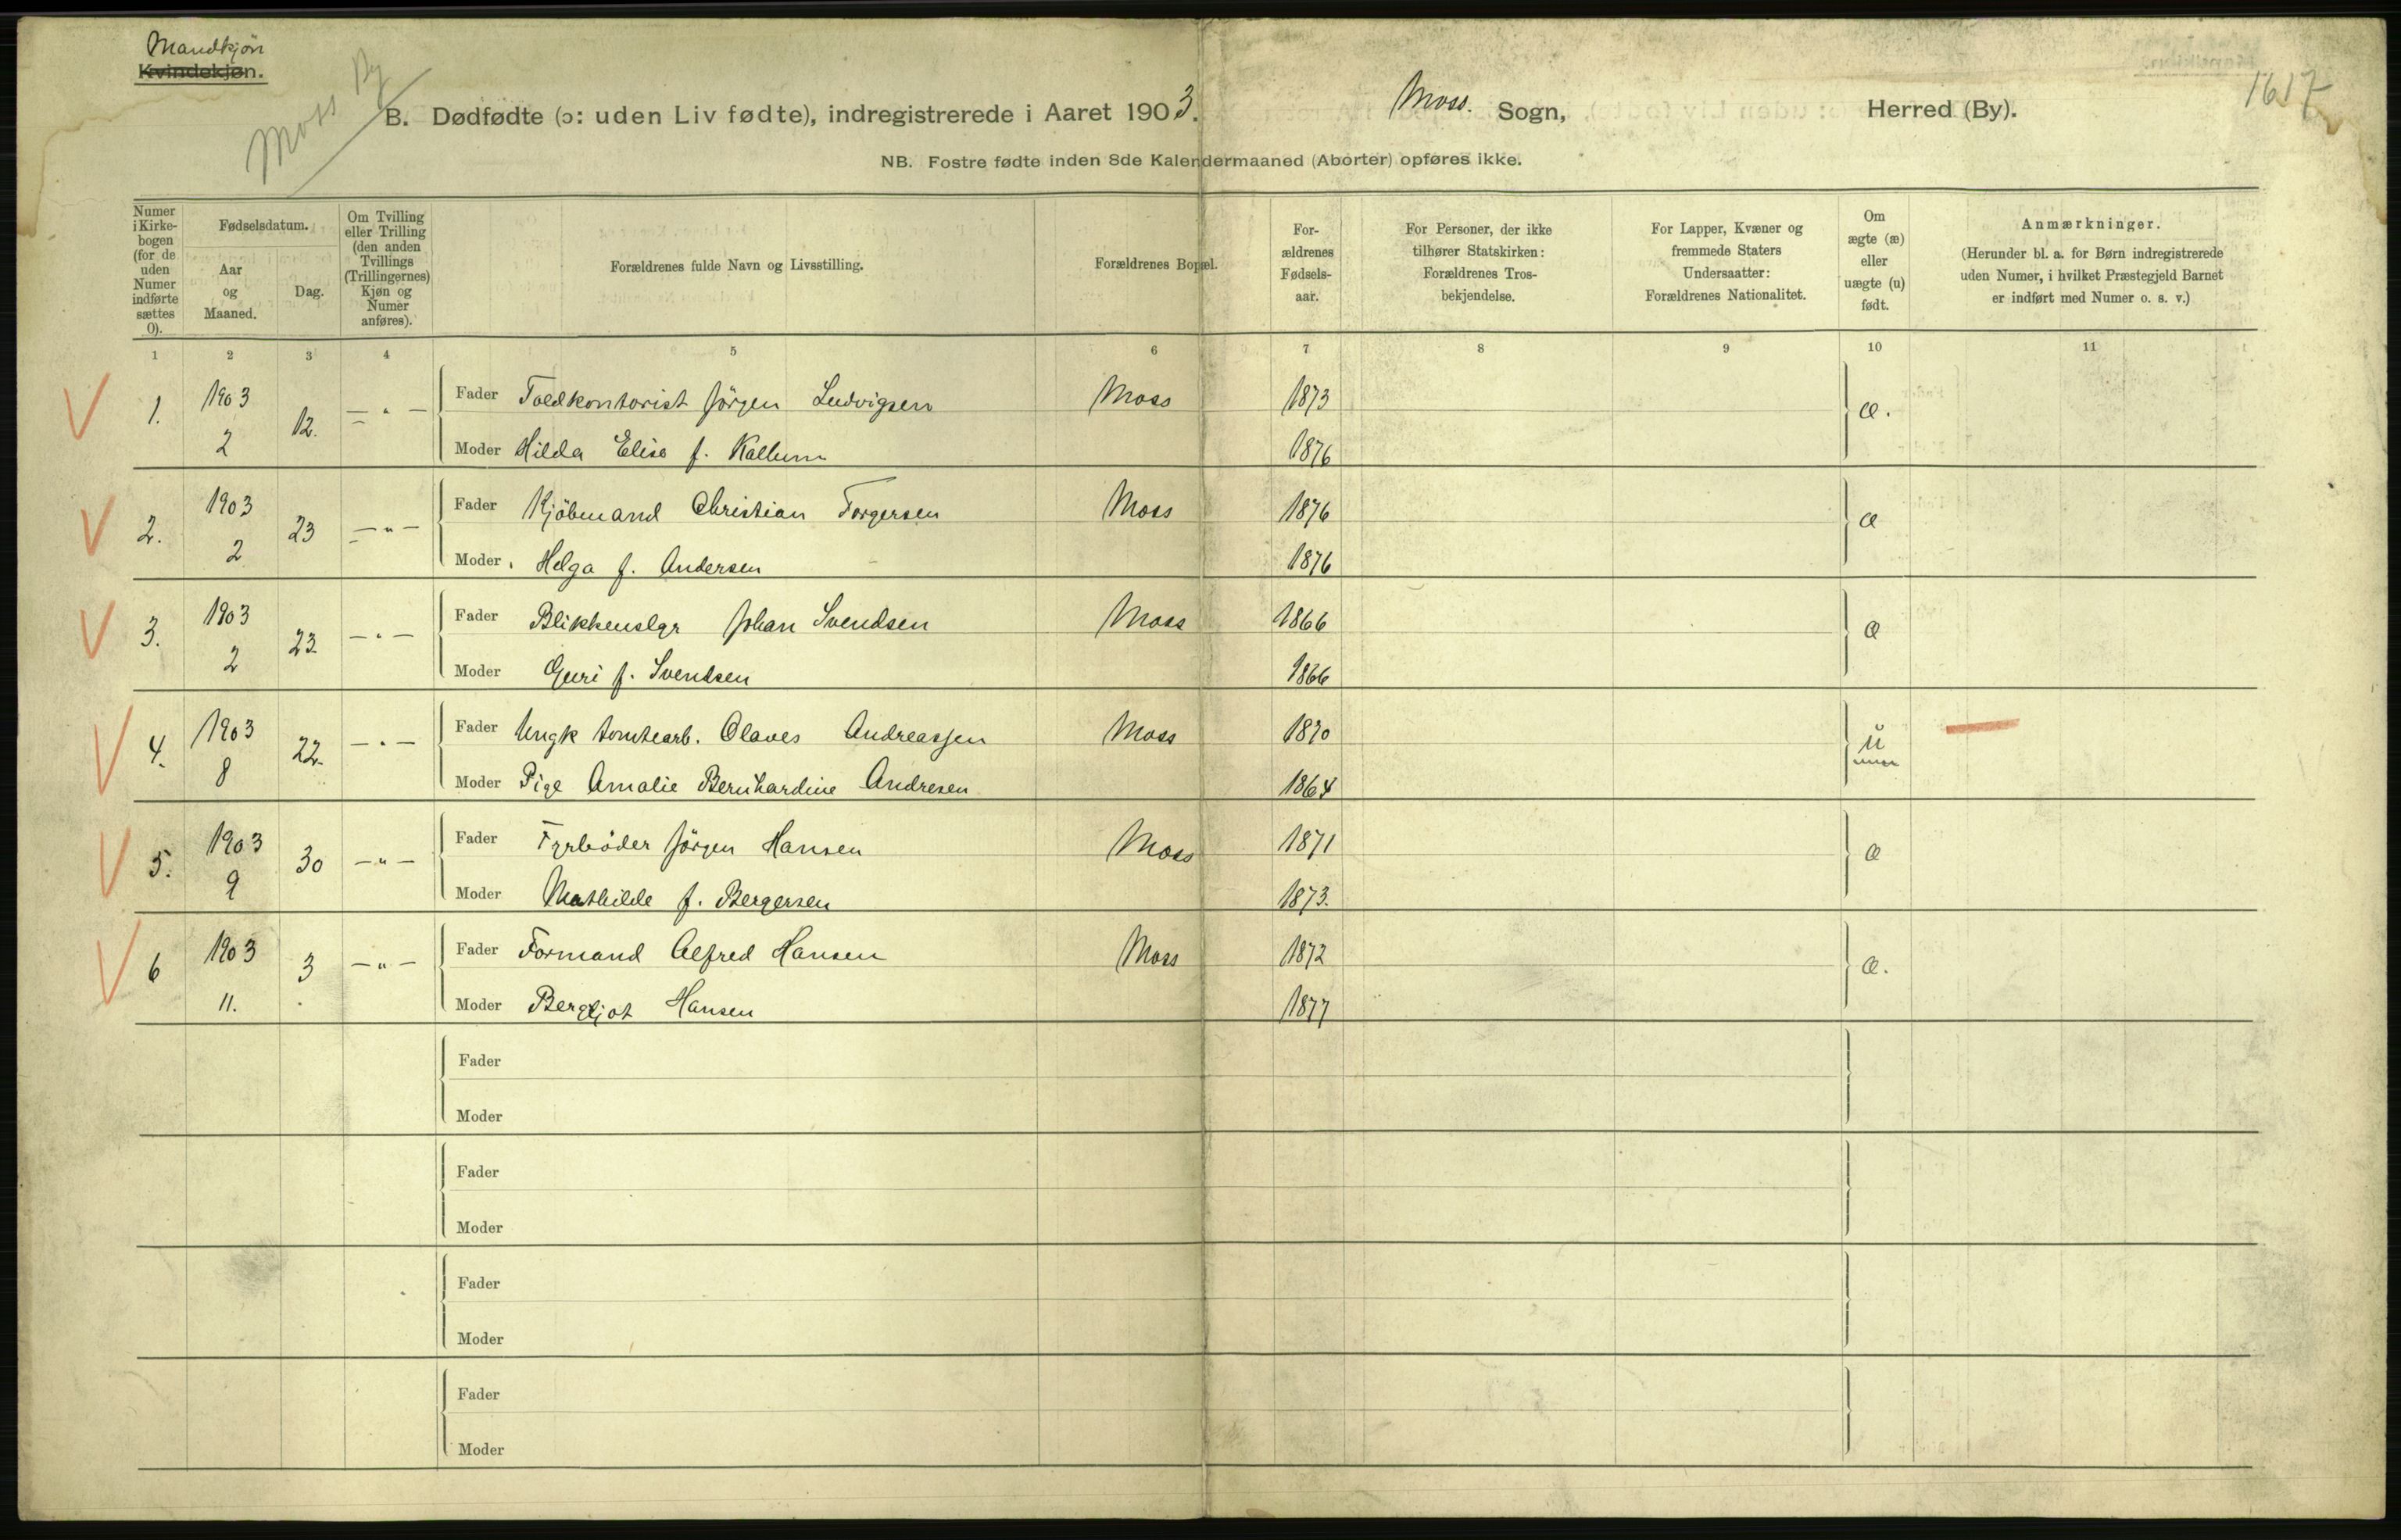 Mandkjøn
Kvindekjøn.
Moss By
B. Dødfødte (ɔ: uden Liv fødte), indregistrerede i Aaret 1903. Moss. Sogn, Herred (By).
1617
NB. Fostre fødte inden 8de Kalendermaaned (Aborter) opføres ikke.
Numer i Kirke-bogen (for de uden Numer indførte sættes 0).
Fødselsdatum.
Aar og Maaned.
Dag.
Om Tvilling eller Trilling (den anden Tvillings (Trillingernes) Kjøn og Numer anføres).
Forældrenes fulde Navn og Livsstilling.
Forældrenes Bopæl.
For-ældrenes Fødsels-aar.
For Personer, der ikke tilhører Statskirken: Forældrenes Tros-bekjendelse.
For Lapper, Kvæner og fremmede Staters Undersaatter: Forældrenes Nationalitet.
Om ægte (æ) eller uægte (u) født.
Anmærkninger.
(Herunder bl. a. for Børn indregistrerede uden Numer, i hvilket Præstegjeld Barnet er indført med Numer o. s. v.)
1 2 3 4 5 6 7 8 9 10 11
1. 1903 2 12. — " — Fader Toldkontorist Jörgen Ludvigsen Moss 1873 æ.
Moder Hilda Elise f. Kallum 1876
2. 1903 2 23 — " — Fader Kjöbmand Christian Torgersen Moss 1876 æ
Moder Helga f. Andersen 1876
3. 1903 2 23. — " — Fader Blikkenslgr Johan Svendsen Moss 1866 æ
Moder Guri f. Svendsen 1866
4. 1903 8 22. — " — Fader Ungk tomtearb. Olaves Andreassen Moss 1870 u
Moder Pige Amalie Bernhardine Andresen 1864
5. 1903 9 30 — " — Fader Fyrböder Jörgen Hansen Moss 1871 æ
Moder Mathilde f. Bergersen 1873.
6 1903 11. 3 — " — Fader Formand Alfred Hansen Moss 1872 æ.
Moder Bergljot Hansen 1877
Fader
Moder
Fader
Moder
Fader
Moder
Fader
Moder